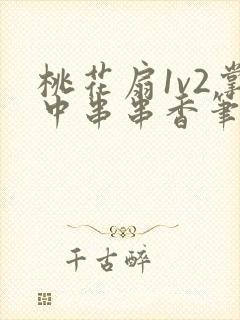 桃花扇1v2掌
中串串香筆
千古醉